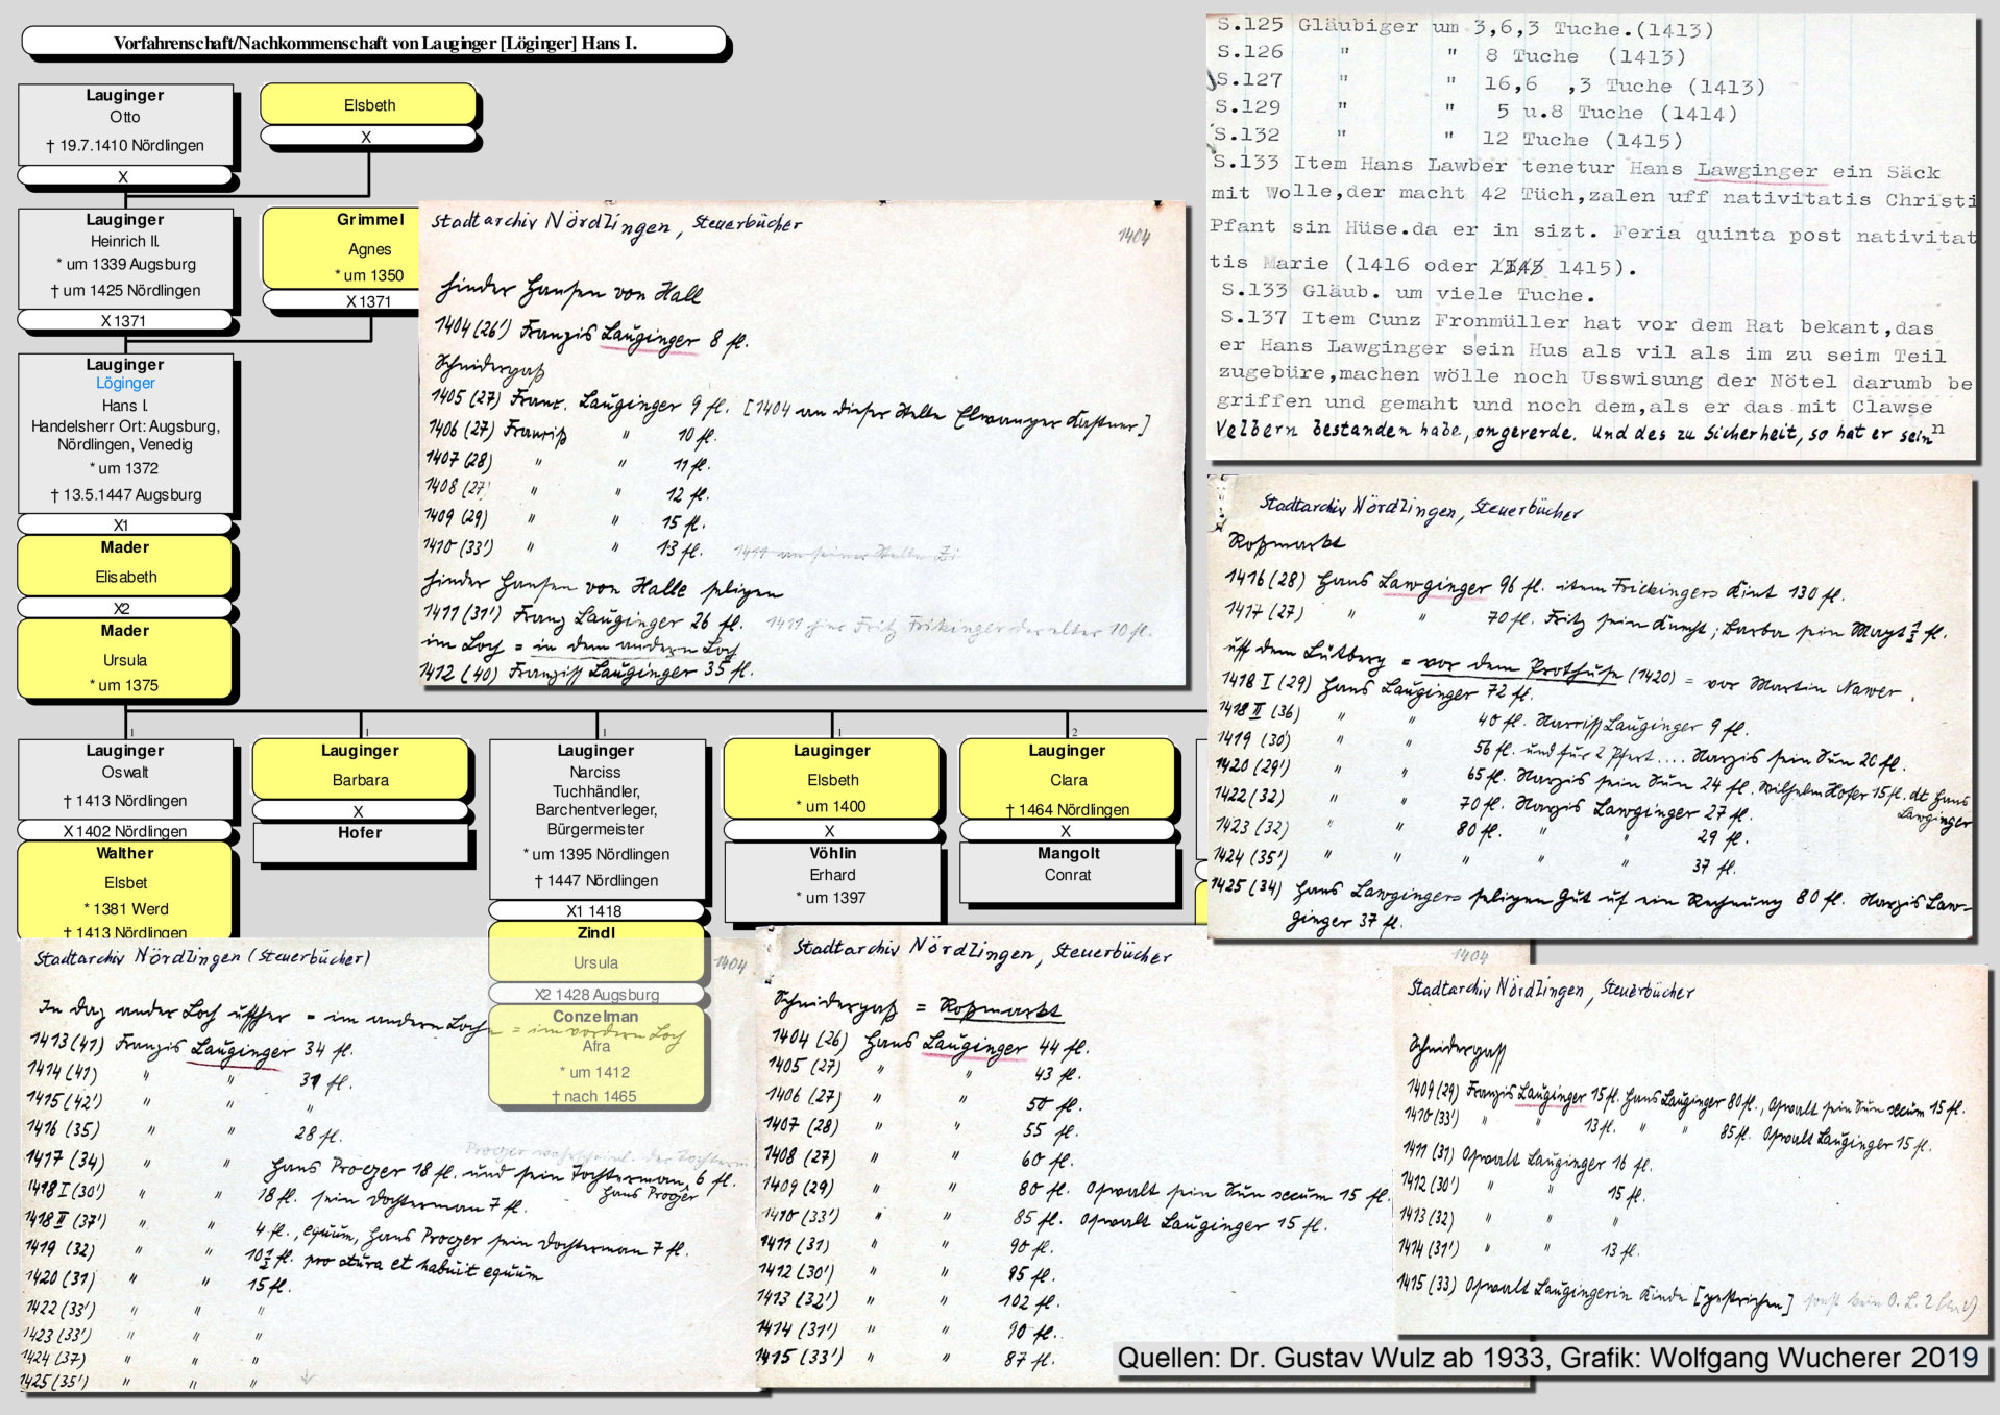 Vorfahrenschaft/Nachkommenschaft von Lauginger [Löginger] Hans I.
Lauginger
Otto
† 19.7.1410 Nördlingen
X
Elsbeth
X
Lauginger
Heinrich II.
* um 1339 Augsburg
† um 1425 Nördlingen
X 1371
Grimmel
Agnes
* um 1350
X 1371
Lauginger
Löginger
Hans I.
Handelsherr Ort: Augsburg,
Nördlingen, Venedig
* um 1372
† 13.5.1447 Augsburg
X1
Mader
Elisabeth
X2
Mader
Ursula
* um 1375
Lauginger
Oswalt
† 1413 Nördlingen
X 1402 Nördlingen
Walther
Elsbet
* 1381 Werd
† 1413 Nördlingen
1
Lauginger
Barbara
X
Hofer
1
Lauginger
Narciss
Tuchhändler,
Barchentverleger,
Bürgermeister
* um 1395 Nördlingen
† 1447 Nördlingen
X1 1418
Zindl
Ursula
X2 1428 Augsburg
Conzelman
Afra
* um 1412
† nach 1465
1
Lauginger
Elsbeth
* um 1400
X
Vöhlin
Erhard
* um 1397
2
Lauginger
Clara
† 1464 Nördlingen
X
Mangolt
Conrat
Stadtarchiv Nördlingen, Steuerbücher
1404
hinder Hansen von Hall
1404 (26') Franzis Lauginger 8 fl.
Schnidergaß
1405 (27) Franz. Lauginger 9 fl. [1404 an dieser Stelle Elwanger Kastner]
1406 (27) Franziß " 10 fl.
1407 (28) " " 11 fl.
1408 (27) " " 12 fl.
1409 (29) " " 15 fl.
1410 (33') " " 13 fl. 1411 an seiner Stelle
hinder Hansen von Halle seligen
1411 (31') Franz Lauginger 26 fl. 1411 hier Fritz Frikinger der alter 10 fl.
im Loch = in dem andern Loch
1412 (40) Franziß Lauginger 35 fl.
S.125 Gläubiger um 3,6,3 Tuche.(1413)
S.126 " " 8 Tuche (1413)
S.127 " " 16,6 ,3 Tuche (1413)
S.129 " " 5 u.8 Tuche (1414)
S.132 " " 12 Tuche (1415)
S.133 Item Hans Lawber tenetur Hans Lawginger ein Säck
mit Wolle,der macht 42 Tüch,zalen uff nativitatis Christi
Pfant sin Hüse.da er in sizt. Feria quinta post nativitat
tis Marie (1416 oder 1415).
S.133 Gläub. um viele Tuche.
S.137 Item Cunz Fronmüller hat vor dem Rat bekant,das
er Hans Lawginger sein Hus als vil als im zu seim Teil
zugebüre,machen wölle noch Usswisung der Nötel darumb be
griffen und gemaht und noch dem,als er das mit Clawse
Velbern bestanden habe, ongererde. Und des zu Sicherheit, so hat er sein n
Stadtarchiv Nördlingen, Steuerbücher
Roßmarkt
1416 (28) Hans Lawginger 96 fl. item Frickingers Kint 130 fl.
1417 (27) " " 70 fl. Fritz sein Knecht; Barba sein Mayt ½ fl.
uff dem Lütberg = vor dem Prothuse (1420) = vor Martin Nawer.
1418 I (29) Hans Lauginger 72 fl.
1418 II (36) " " 40 fl. Narziß Lauginger 9 fl.
1419 (30') " " 56 fl. und für 2 Pfert.... Narzis sein Sun 20 fl.
1420 (29') " " 65 fl. Narzis sein Sun 24 fl. Wilhelm Hofer 15 fl. dt Hans Lawginger
1422 (32) " " 70 fl. Narzis Lawginger 27 fl.
1423 (32) " " 80 fl. " " 29 fl.
1424 (35') " " " " " 37 fl.
1425 (34) Hans Lawgingers seligen Gut uf ein Rechnung 80 fl. Narzis Law-
ginger 37 fl.
Stadtarchiv Nördlingen (Steuerbücher)
1404
In daz ander Loch uffher = im andern Loch = im vordern Loch
1413 (41) Franzis Lauginger 34 fl.
1414 (41) " " 31 fl.
1415 (42') " " "
1416 (35) " " 28 fl.
Proeger wahrscheinl. der Tochterm
1417 (34) " " Hans Proeger 18 fl. und sein Tochterman 6 fl.
Hans Proger
1418 I (30') " " 18 fl. sein Dochterman 7 fl.
1418 II (37') " " 4 fl., equum, Hans Proeger sein Dochterman 7 fl.
1419 (32) " " 10½ fl. pro stura et habuit equum
1420 (31) " " 15 fl.
1422 (33') " " "
1423 (33') " " "
1424 (37) " " "
1425 (35') " " "
Stadtarchiv Nördlingen, Steuerbücher
1404
Schnidergaß = Roßmarkt
1404 (26) Hans Lauginger 44 fl.
1405 (27) " " 43 fl.
1406 (27) " " 50 fl.
1407 (28) " " 55 fl.
1408 (27) " " 60 fl.
1409 (29) " " 80 fl. Oswalt sein Sun secum 15 fl.
1410 (33') " " 85 fl. Oswalt Lauginger 15 fl.
1411 (31) " " 90 fl.
1412 (30') " " 95 fl.
1413 (32') " " 102 fl.
1414 (31') " " 90 fl.
1415 (33') " " 87 fl.
Stadtarchiv Nördlingen, Steuerbücher
Schnidergaß
1409 (29) Franzis Lauginger 15 fl. Hans Lauginger 80 fl., Oswalt sein Sun secum 15 fl.
1410 (33') " " 13 fl. " " 85 fl. Oswalt Lauginger 15 fl.
1411 (31) Oswalt Lauginger 16 fl.
1412 (30') " " 15 fl.
1413 (32) " " "
1414 (31') " " 13 fl.
1415 (33) Oswalt Laugingerin Kinde [gestrichen]
Quellen: Dr. Gustav Wulz ab 1933, Grafik: Wolfgang Wucherer 2019